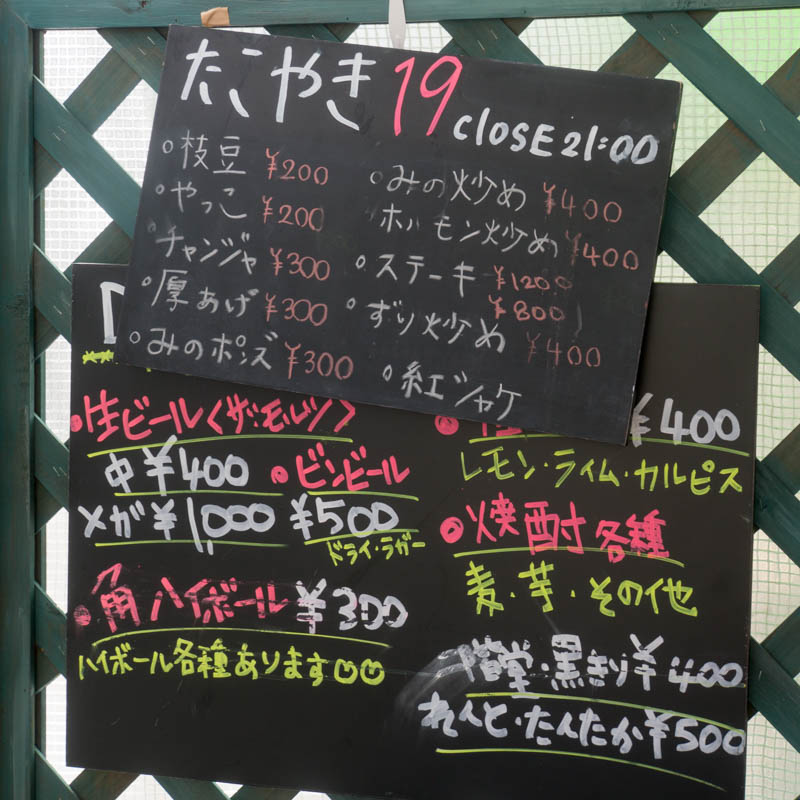 たこやき19 CLOSE 21:00
○枝豆 ¥200
・やっこ ¥200
・チャンジャ ¥300
・厚あげ ¥300
・みのポンズ ¥300
○みの炒め ¥400
ホルモン炒め ¥400
○ステーキ ¥1200
¥800
○ずり炒め ¥400
○紅シャケ
・生ビール〈ザ・モルツ〉
中¥400
メガ¥1,000
・ビンビール
¥500
ドライ・ラガー
・角ハイボール ¥300
ハイボール各種あります
¥400
レモン・ライム・カルピス
・焼酎各種
麦・芋・その他
・黒きり¥400
れんと・たんたか¥500